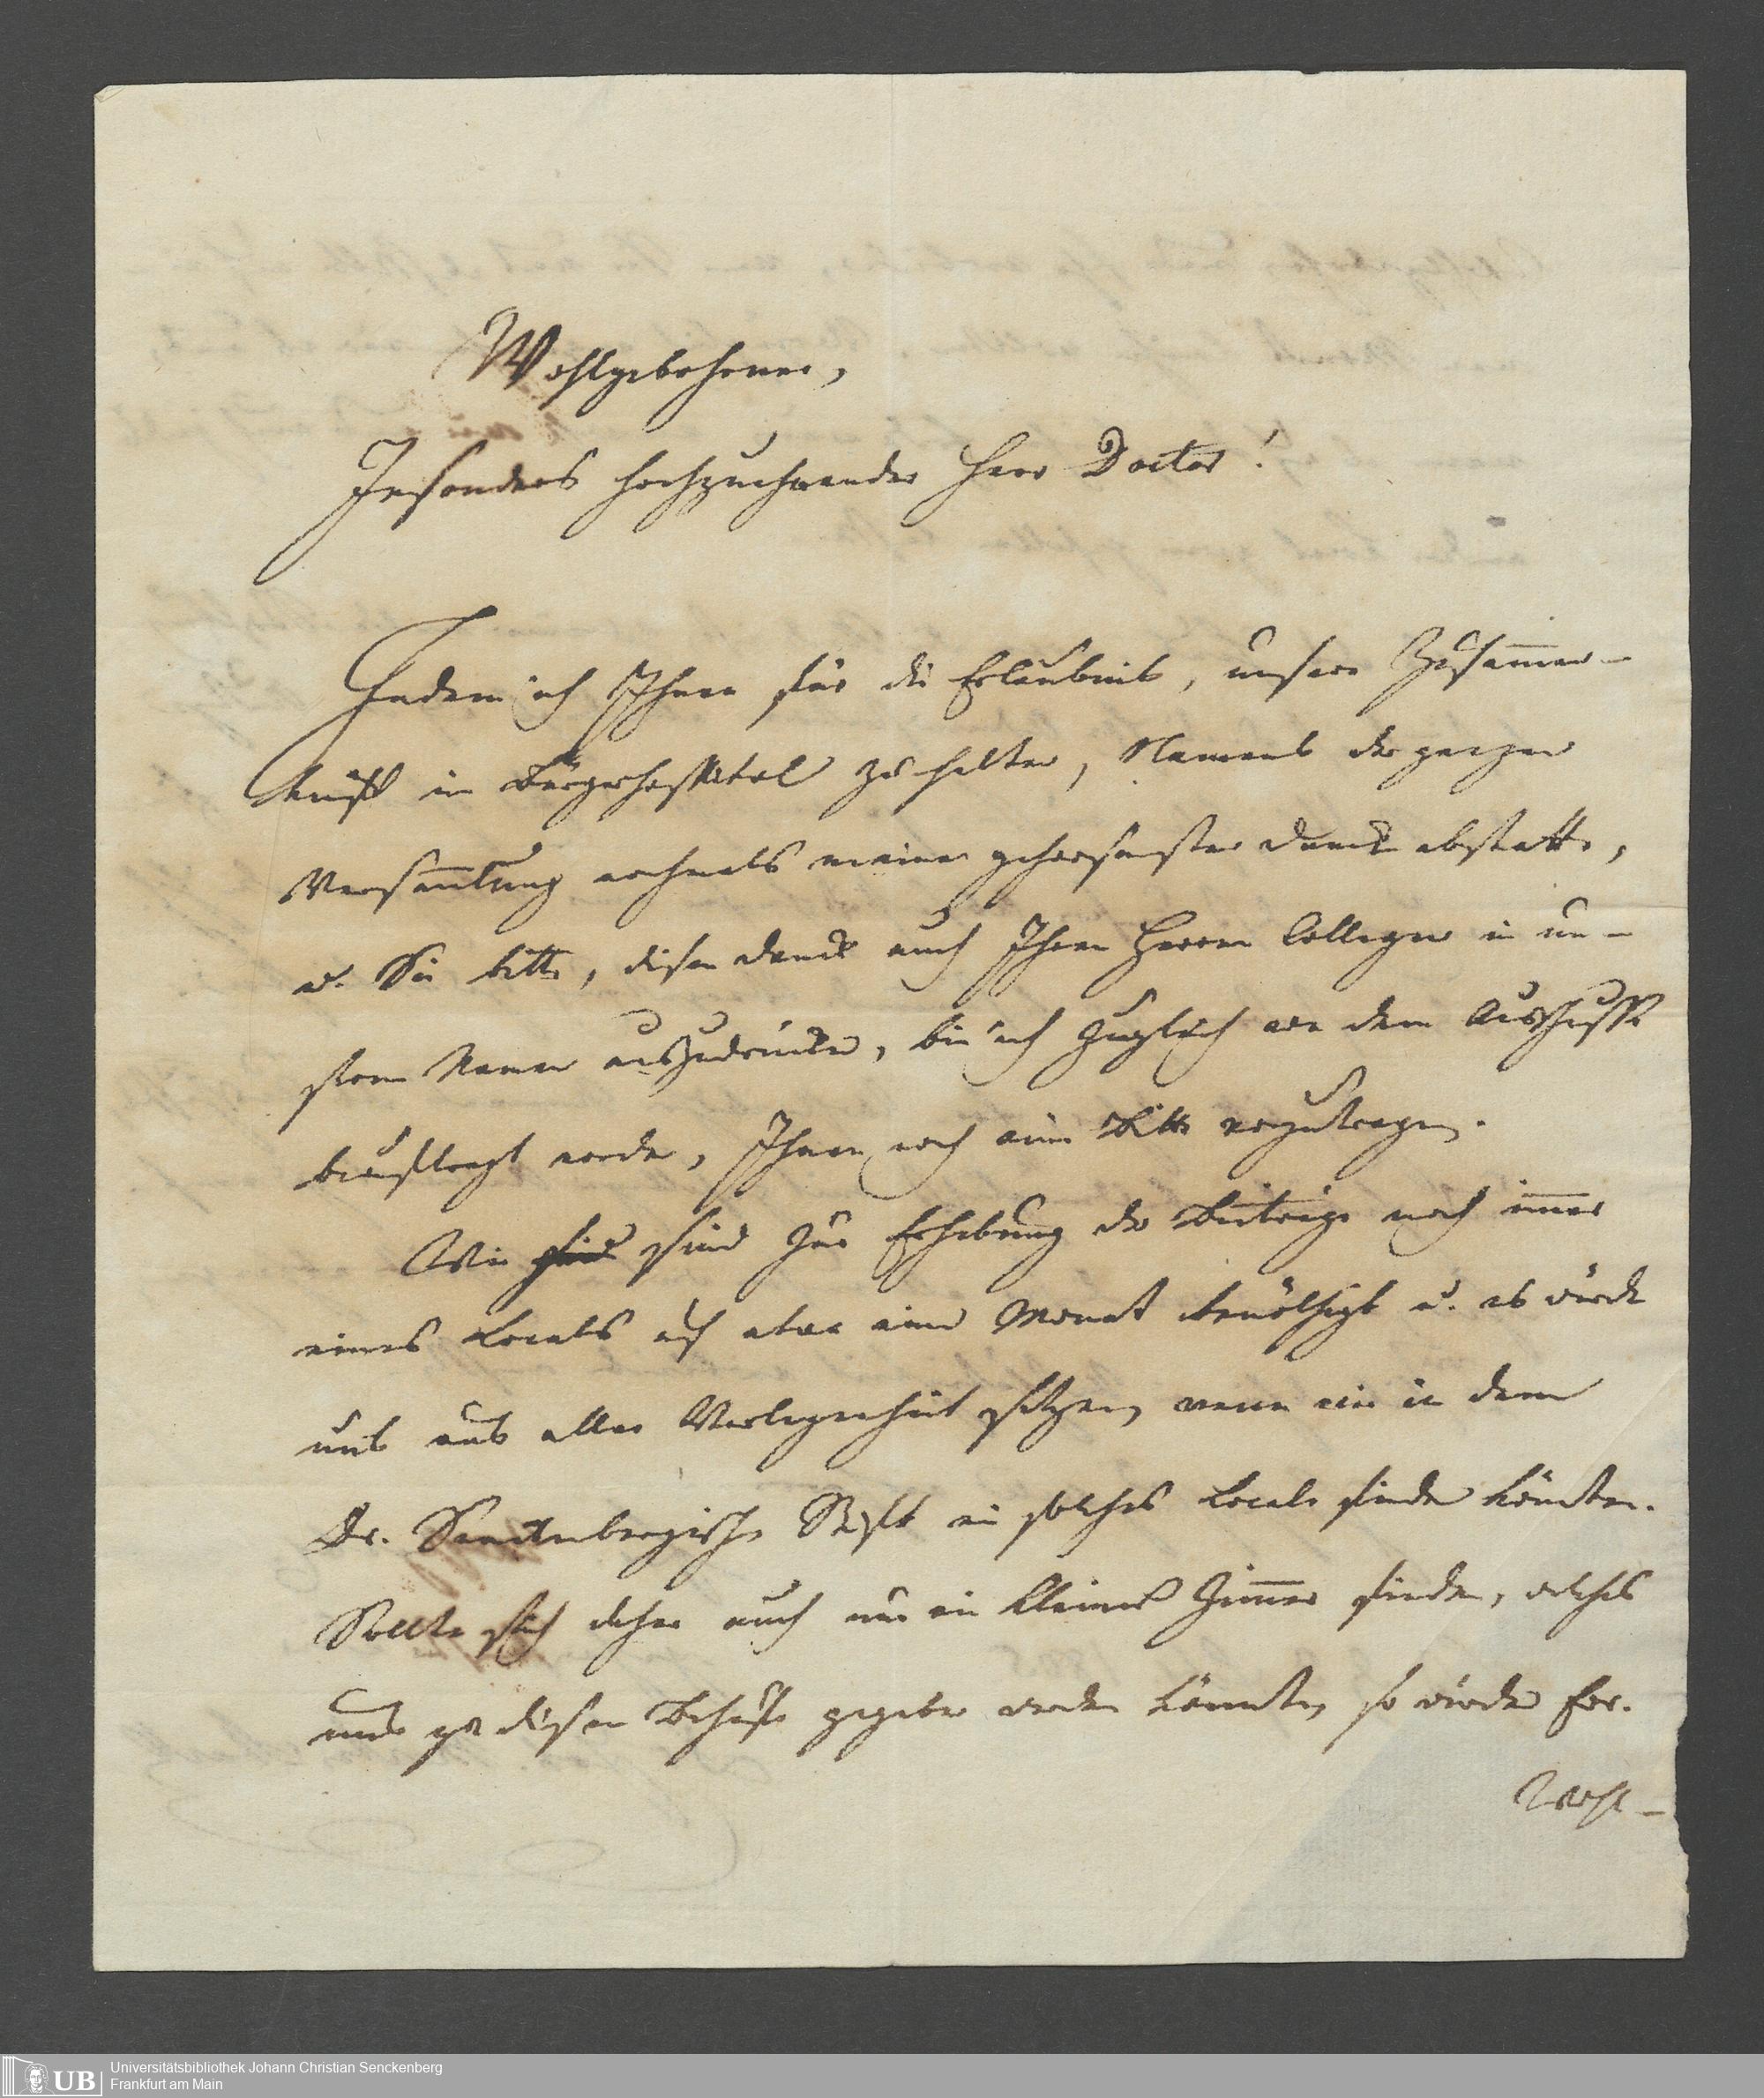 Wohlgebohrner,
Insonders hochzuehrender Herr Doctor!
Indem ich Ihnen für die Erlaubniß, unsere Zusammen-
kunft im Bürgerhospital zu halten, Namens der ganzen
Versam̅lung nochmals meinen gehorsamsten Danck abstatte,
u. Sie bitte, diesen Danck auch Ihren Herren Collegen in un-
serm Namen auszudrücken, bin ich zugleich von dem Ausschusse
beauftragt worden, Ihnen noch eine Bitte vorzutragen.
Wir sind sind zur Erhebung der Beiträge noch im̅er
eines Locals auf etwa einen Monat benöthigt u. es würde
uns aus aller Verlegenheit setzen, wenn wir in dem
Dr. Senckenbergischen Stift ein solches Local finden könnten.
Sollte sich daher auch nur ein kleines Zim̅er finden, welches
uns zu diesem Behufe gegeben werden könnte, so würden Ew.
Wohl-
Universitätsbibliothek Johann Christian Senckenberg
Frankfurt am Main
UB